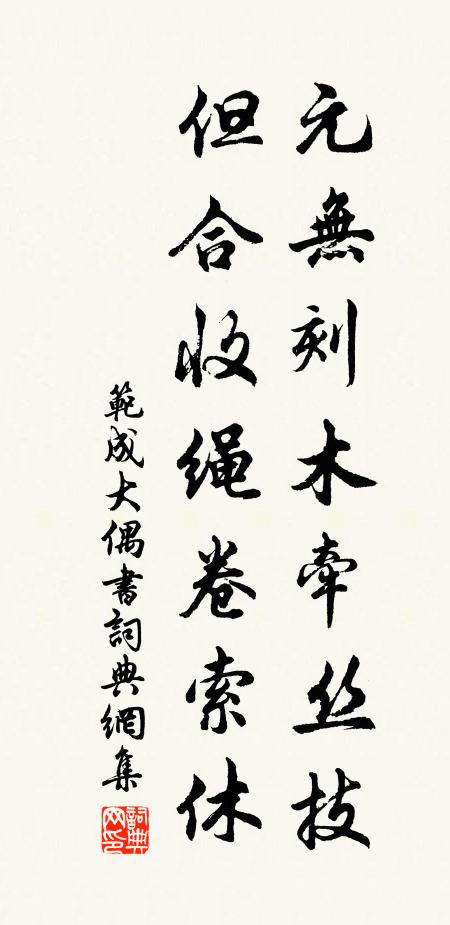 元無刻木牽丝技
但合收绳卷索休
範成大偶書詞典網集
詞典网印